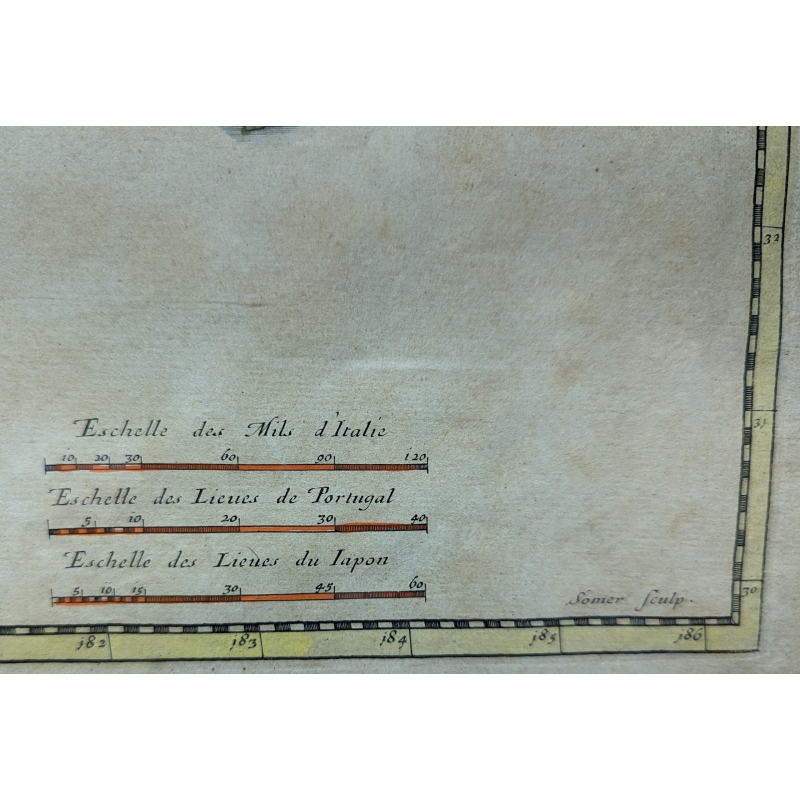 32
31
Eschelle des Mils d'Italie
10 20 30 60 90 120
Eschelle des Lieues de Portugal
5 10 20 30 40
Eschelle des Lieues du Iapon
5 10 15 30 45 60
Somer sculp.
30
182 183 184 185 186